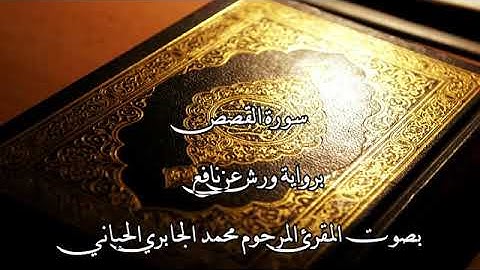 سورة القصص
برواية ورش عن نافع
بصوت المقرئ المرحوم محمد الجابري الحياني